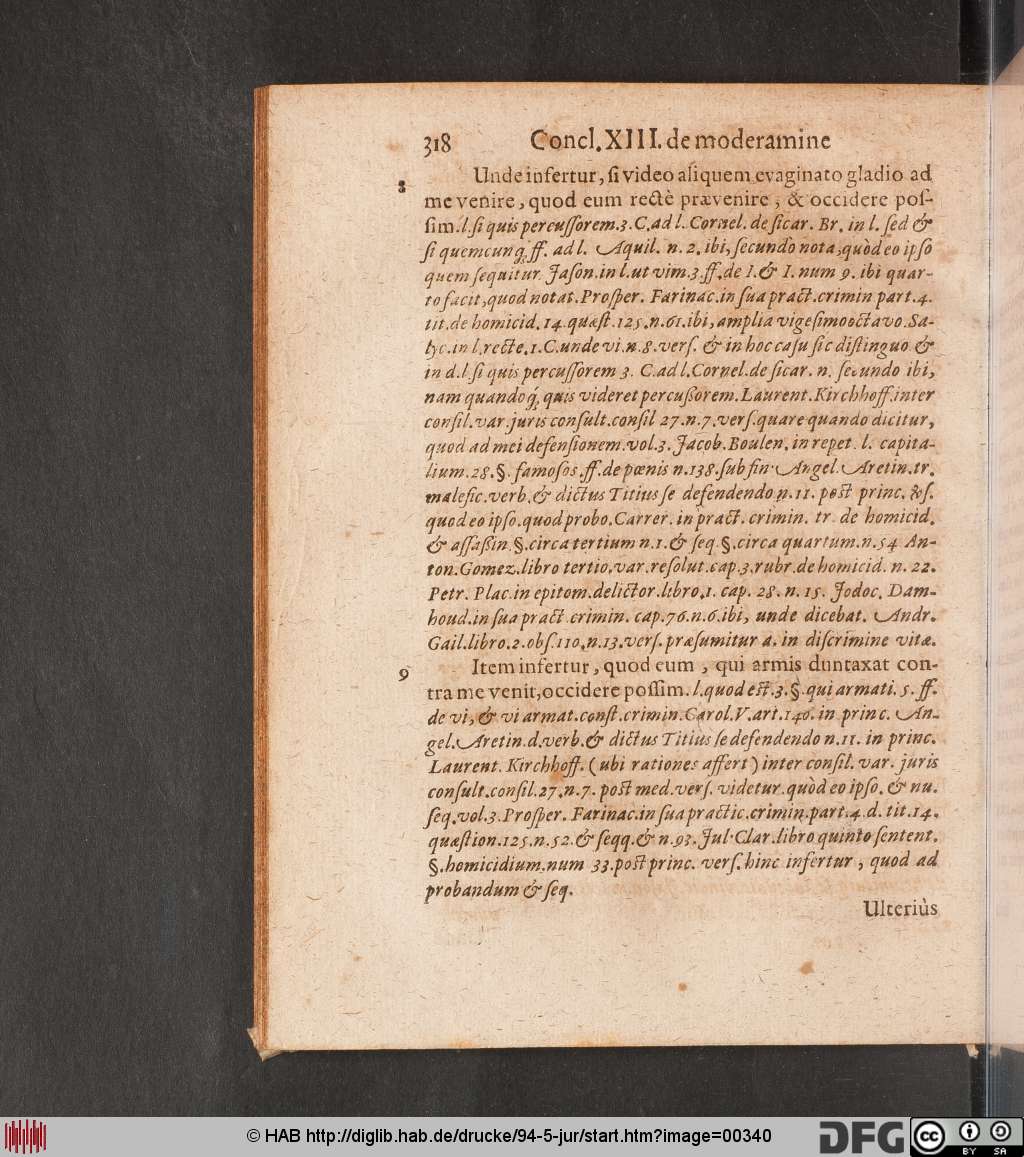 318 Concl. XIII. de moderamine
8 Unde infertur, si video aliquem evaginato gladio ad
me venire, quod eum rectè prævenire, & occidere pos-
sim. l. si quis percussorem. 3. C. ad l. Cornel. de sicar. Br. in l. sed &
si quemcunq́, ff. ad l. Aquil. n. 2. ibi, secundò nota, quòd eo ipso
quem sequitur Jason. in l. ut vim. 3. ff. de I. & I. num 9. ibi quar-
to facit, quod notat. Prosper. Farinac. in sua pract. crimin part. 4.
tit. de homicid. 14. quæst. 125. n. 61. ibi, amplia vigesimooctavo. Sa-
lyc. in l. recte. 1. C. unde vi. n. 8. vers. & in hoc casu sic distinguo &
in d. l. si quis percussorem 3. C. ad l. Cornel. de sicar. n. secundo ibi,
nam quandoq́, quis videret percussorem. Laurent. Kirchhoff. inter
consil. var. juris consult. consil 27. n. 7. vers. quare quando dicitur,
quod ad mei defensionem. vol. 3. Jacob. Boulen. in repet. l. capita-
lium. 28. §. famosos. ff. de pœnis n. 138. sub fin. Angel. Aretin. tr.
malefic. verb. & dictus Titius se defendendo n. 11. post princ. & s.
quod eo ipso. quod probo. Carrer. in pract. crimin. tr. de homicid.
& assassin. §. circa tertium n. 1. & seq. §. circa quartum. n. 54 An-
ton. Gomez. libro tertio. var. resolut. cap. 3. rubr. de homicid. n. 22.
Petr. Plac. in epitom. delictor. libro. 1. cap. 28. n. 15. Jodoc. Dam-
houd. in sua pract crimin. cap. 76. n. 6. ibi, unde dicebat. Andr.
Gail. libro. 2. obs. 110. n. 13. vers. præsumitur a. in discrimine vitæ.
9 Item infertur, quod eum, qui armis duntaxat con-
tra me venit, occidere possim. l. quod est. 3. §. qui armati. 5. ff.
de vi, & vi armat. const. crimin. Carol. V. art. 140. in princ. An-
gel. Aretin. d. verb. & dictus Titius se defendendo n. 11. in princ.
Laurent. Kirchhoff. (ubi rationes affert) inter consil. var. juris
consult. consil. 27. n. 7. post med. vers. videtur quòd eo ipso. & nu.
seq. vol. 3. Prosper. Farinac. in sua practic. crimin. part. 4. d. tit. 14.
quæstion. 125. n. 52. & seqq. & n. 93. Jul. Clar. libro quinto sentent.
§. homicidium. num 33. post princ. vers. hinc infertur, quod ad
probandum & seq.
Ulteriùs
© HAB http://diglib.hab.de/drucke/94-5-jur/start.htm?image=00340
DFG cc BY SA